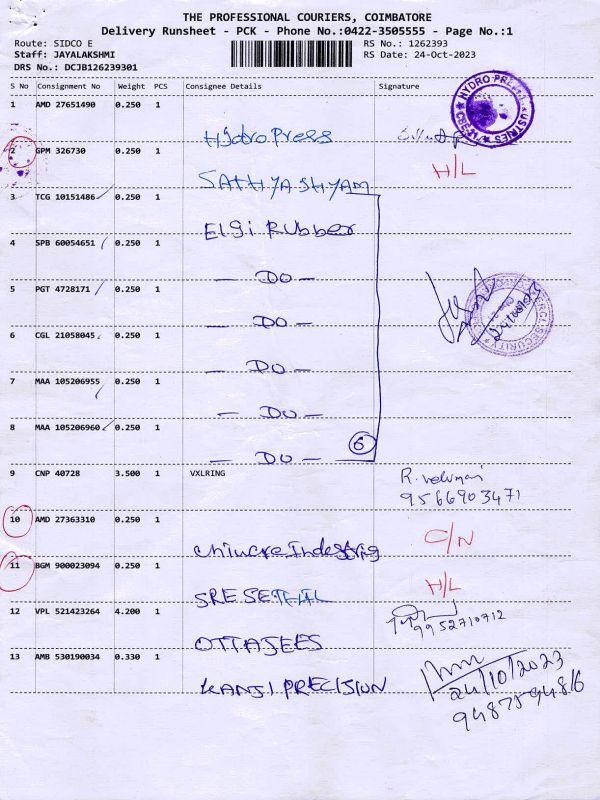 THE PROFESSIONAL COURIERS, COIMBATORE
Delivery Runsheet - PCK - Phone No.:0422-3505555 - Page No.:1
Route: SIDCO E RS No.: 1262393
Staff: JAYALAKSHMI RS Date: 24-Oct-2023
DRS No.: DCJB126239301
S No Consignment No Weight PCS Consignee Details Signature
1 AMD 27651490 0.250 1
Hydro Press
HYDRO
2 GPM 326730 0.250 1
SATHYA SHYAM H/L
3 TCG 10151486 0.250 1
Elgi Rubber
4 SPB 60054651 0.250 1
- DO -
5 PGT 4728171 0.250 1
- DO -
SECURITY
6 CGL 21058045 0.250 1
- DO -
7 MAA 105206955 0.250 1
- DO -
8 MAA 105206960 0.250 1
- DO - 6
9 CNP 40728 3.500 1 VXLRING
9566903471
10 AMD 27363310 0.250 1
C/N
11 BGM 900023094 0.250 1
H/L
12 VPL 521423264 4.200 1
OTTAJEES 9952710712
13 AMB 530190034 0.330 1
KANJI PRECISION
24/10/2023
9487594816